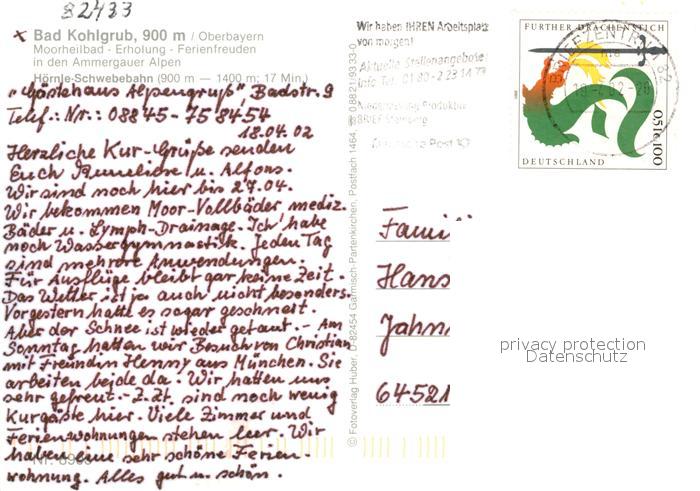 82433
x Bad Kohlgrub, 900 m / Oberbayern
Moorheilbad - Erholung - Ferienfreuden
in den Ammergauer Alpen
Hörnle-Schwebebahn (900 m — 1400 m; 17 Min.)
"Gästehaus Alpengruß", Badstr. 9
Telef.: Nr.: 08845-758454
18.04.02
Herzliche Kur-Grüße senden
Euch Anneliese u. Alfons.
Wir sind noch hier bis 27.04.
Wir bekommen Moor-Vollbäder mediz.
Bäder u. Lymph-Drainage. Ich habe
noch Wassergymnastik. Jeden Tag
sind mehrere Anwendungen.
Für Ausflüge bleibt gar keine Zeit.
Das Wetter ist ja auch nicht besonders.
Vorgestern hatte es sogar geschneit.
Aber der Schnee ist wieder getaut. - Am
Sonntag hatten wir Besuch von Christian
mit Freundin Henny aus München. Sie
arbeiten beide da. Wir hatten uns
sehr gefreut. - Z.Zt. sind noch wenig
Kurgäste hier. Viele Zimmer und
Ferienwohnungen stehen leer. Wir
haben eine sehr schöne Ferien-
wohnung. Alles gut u. schön.
© Fotoverlag Huber, D-82454 Garmisch-Partenkirchen, Postfach 1464
Wir haben IHREN Arbeitsplatz
von morgen!
Aktuelle Stellenangebote:
Info Tel. 01 80 - 2 23 14 73
Deutsche Post
FURTHER DRACHENSTICH
BRIEFZENTRUM 82
DEUTSCHLAND
0,51€ 100
Fami
Hans
Jahn
64521
privacy protection
Datenschutz